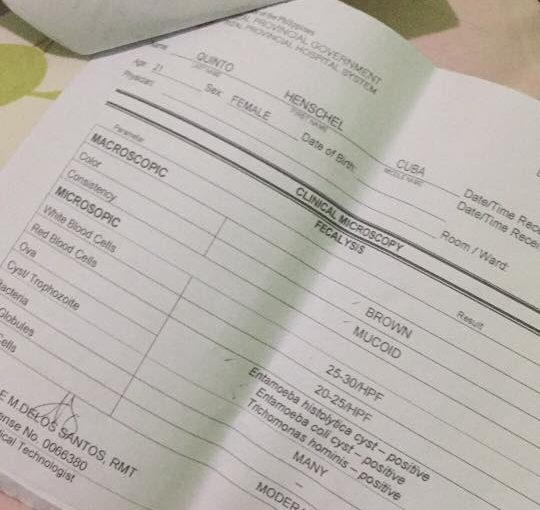 of the Philippines
PROVINCIAL GOVERNMENT
PROVINCIAL HOSPITAL SYSTEM
QUINTO HENSCHEL CUBA
LASTNAME FIRST NAME MIDDLE NAME
Age: 21 Sex: FEMALE Date of Birth: Date/Time Rec
Physician: Room / Ward: Date/Time Recei
CLINICAL MICROSCOPY
FECALYSIS
Parameter Result
MACROSCOPIC
Color BROWN
Consistency MUCOID
MICROSOPIC
White Blood Cells 25-30/HPF
Red Blood Cells 20-25/HPF
Ova Entamoeba histolytica cyst – positive
Cyst/ Trophozoite Entamoeba coli cyst – positive
Trichomonas hominis – positive
Bacteria MANY
Globules –
Cells MODERA
E M.DELOS SANTOS, RMT
ense No. 0066380
ical Technologist